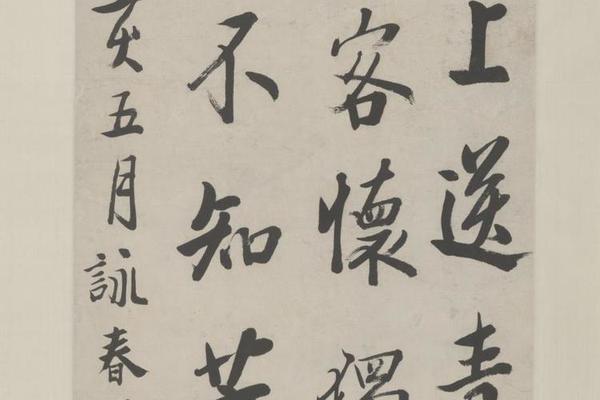 上送青
客懷獨
不知
亥五月詠春